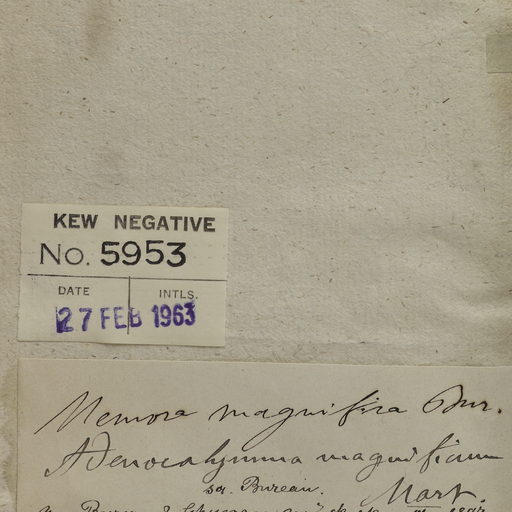 KEW NEGATIVE
No. 5953
DATE INTLS.
27 FEB 1963
Memora magnifica Bur.
Adenocalymma magnificum
sec. Bureau. Mart.
Bureau &